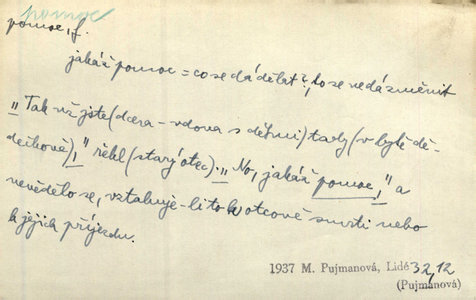 pomoc
pomoc, f.
jakáž pomoc = co se dá dělat?, to se nedá změnit
„Tak už jste (dcera – vdova s dětmi) tady (v bytě dě-
dečkově),“ řekl (starý otec). „No, jakáž pomoc,“ a
nevědělo se, vztahuje-li to k otcově smrti nebo
k jejich příjezdu.
1937 M. Pujmanová, Lidé 32,12
(Pujmanová)